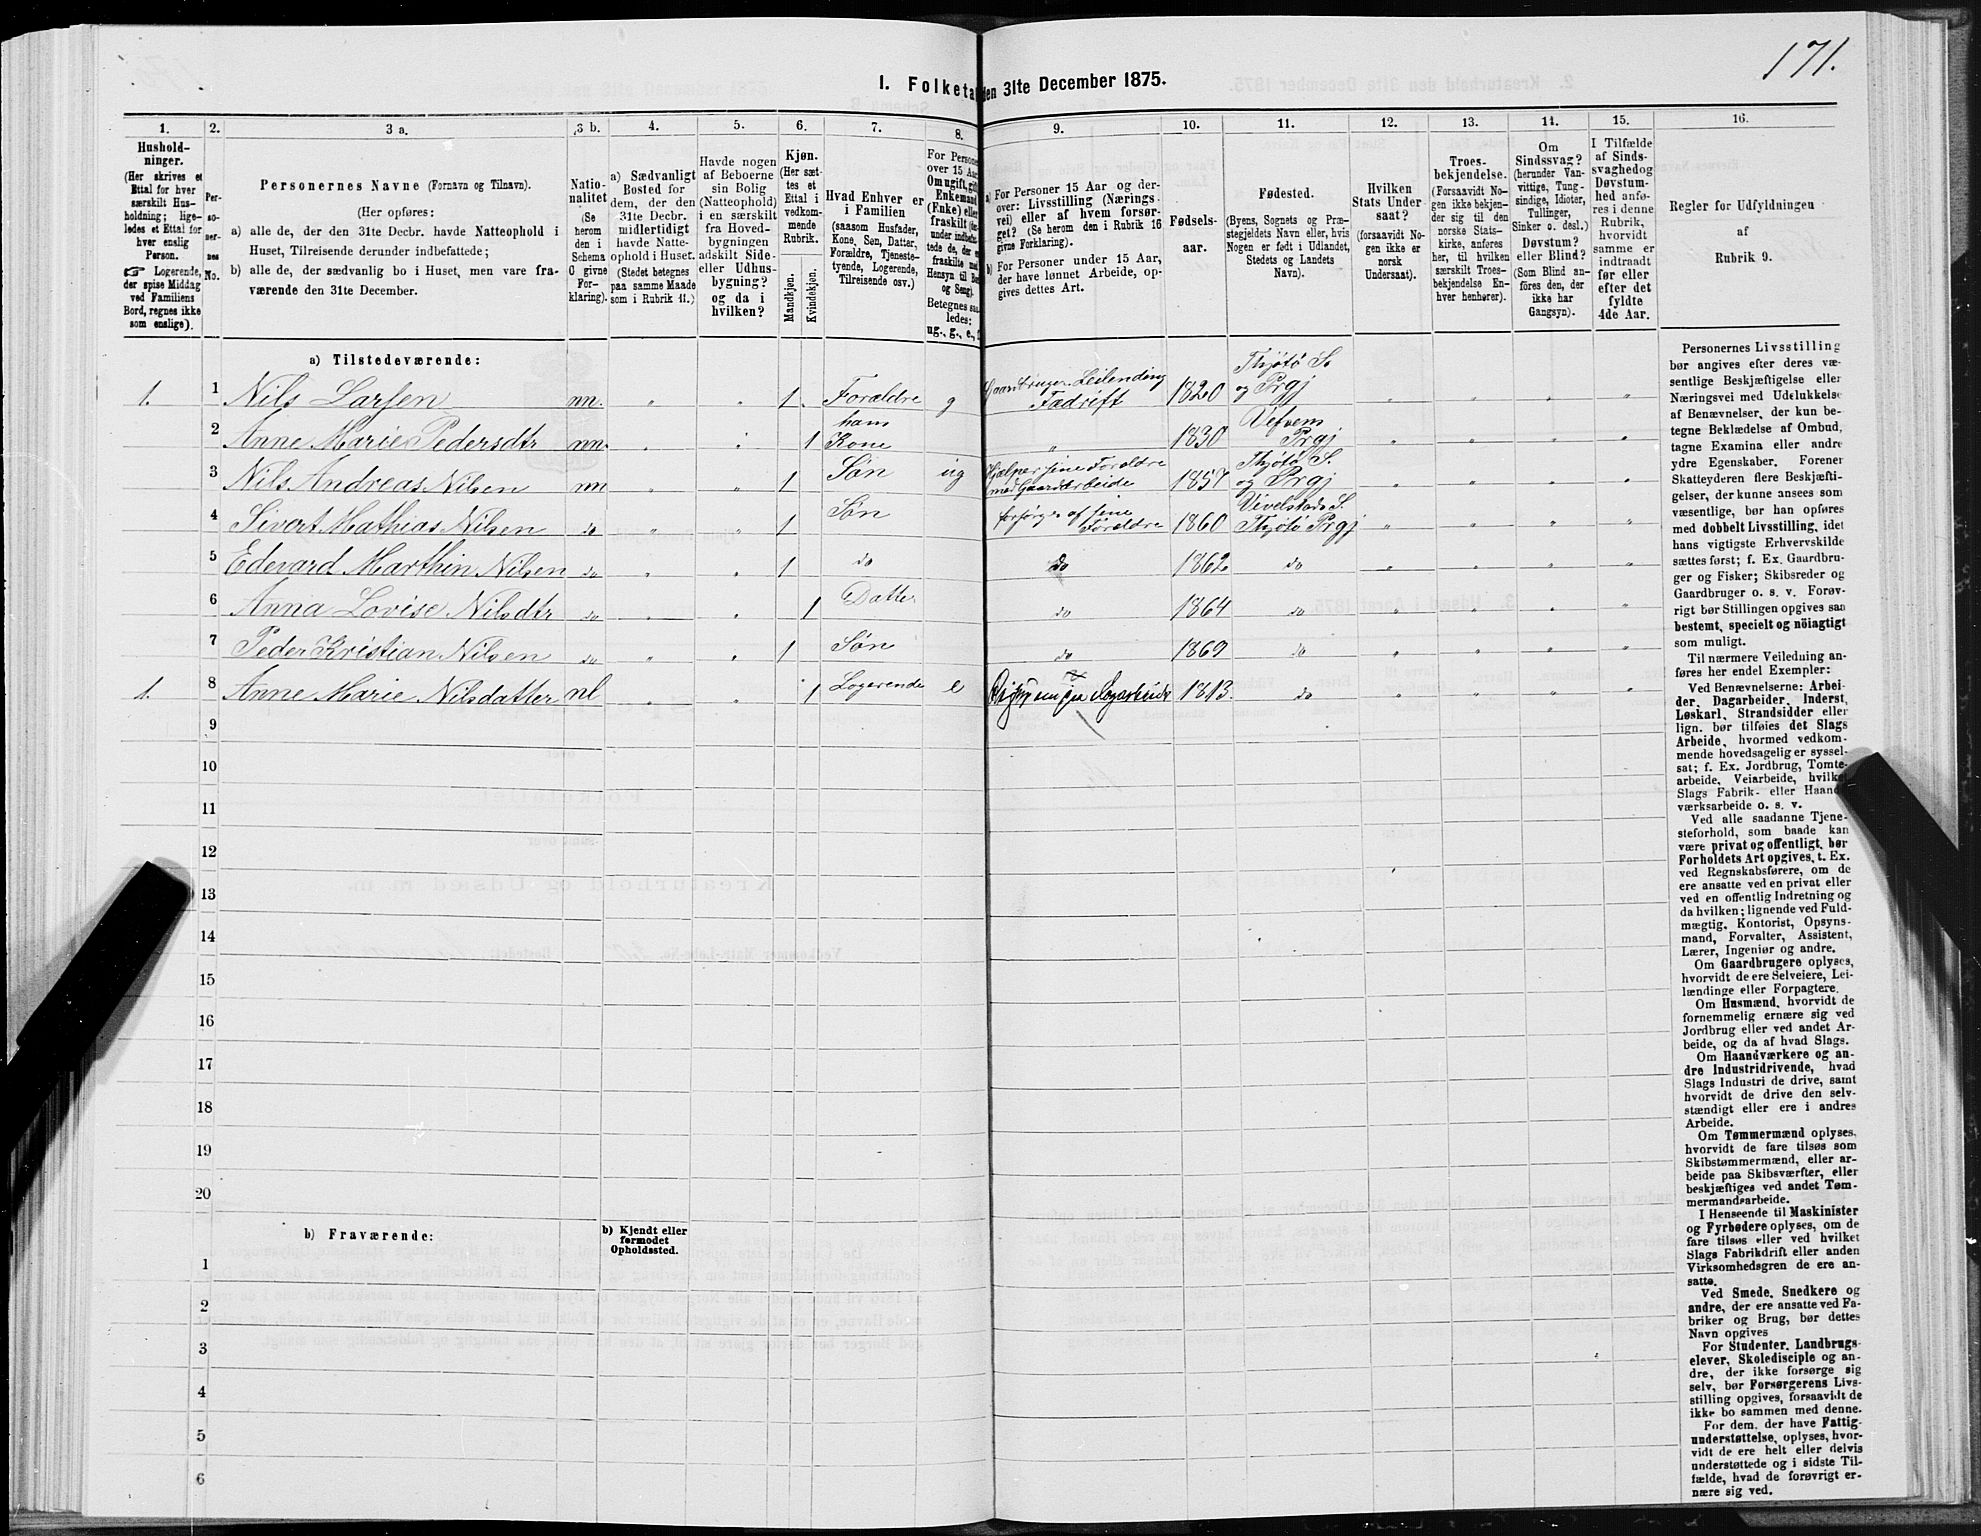 171.
1. Folketa den 31te December 1875.
1. 2. 3 a. 3 b. 4. 5. 6. 7. 8. 9. 10. 11. 12. 13. 14. 15. 16.
Hushold-
ninger.
(Her skrives et
Ettal for hver
særskilt Hus-
holdning; lige-
ledes et Ettal for
hver enslig
Person.
☞ Logerende,
der spise Middag
ved Familiens
Bord, regnes ikke
som enslige).
Per-
so-
ner-
nes
No.
Personernes Navne (Fornavn og Tilnavn).
(Her opføres:
a) alle de, der den 31te Decbr. havde Natteophold i
Huset, Tilreisende derunder indbefattede;
b) alle de, der sædvanlig bo i Huset, men vare fra-
værende den 31te December.
Natio-
nalitet
(Se
herom
den i
Schema
C givne
For-
klaring).
a) Sædvanligt
Bosted for
dem, der den
31te Decbr.
midlertidigt
havde Natte-
ophold i Huset.
(Stedet betegnes
paa samme Maade
som i Rubrik 11.)
Havde nogen
af Beboerne
sin Bolig
(Natteophold)
i en særskilt
fra Hoved-
bygningen
adskilt Side-
eller Udhus-
bygning?
og da i
hvilken?
Kjøn.
(Her sæt-
tes et
Ettal i
vedkom-
mende
Rubrik.
Mandkjøn.
Kvindekjøn.
Hvad Enhver er
i Familien
(saasom Husfader,
Kone, Søn, Datter,
Forældre, Tjeneste-
tyende, Logerende,
Tilreisende osv.)
For Persone
over 15 Aar
Om ugift, gift
Enkemand
(Enke) eller
fraskilt
under indbefat-
tede de, der e
fraskilte med
Hensyn til Bor
og Seng).
Betegnes saa-
ledes:
ug., g., e.,
a) For Personer 15 Aar og der-
over: Livsstilling (Nærings-
vei) eller af hvem forsør-
get? (Se herom den i Rubrik 16
givne Forklaring).
b) For Personer under 15 Aar,
der have lønnet Arbeide, op-
gives dettes Art.
Fødsels-
aar.
Fødested.
(Byens, Sognets og Præ-
stegjeldets Navn eller, hvis
Nogen er født i Udlandet,
Stedets og Landets
Navn).
Hvilken
Stats Under
saat?
(forsaavidt No-
gen ikke er
norsk
Undersaat).
Troes-
bekjendelse.
(Forsaavidt No-
gen ikke bekjen-
der sig til den
norske Stats-
kirke, anføres
her, til hvilken
særskilt Troes-
bekjendelse En-
hver henhører).
Om
Sindssvag?
(herunder Van-
vittige, Tung-
sindige, Idioter,
Tullinger,
Sinker o. desl.)
Døvstum?
eller Blind?
(Som Blind an-
føres den, der
ikke har
Gangsyn).
I Tilfælde
af Sinds-
svaghedog
Døvstum-
hed anfø-
res i denne
Rubrik,
hvorvidt
samme er
indtraadt
før eller
efter det
fyldte
4de Aar.
Regler for Udfyldningen
af
Rubrik 9.
a) Tilstedeværende:
1. 1 Nils Larsen nn. " " 1. Forældre g Leilending Fædrift 1820 Thjøtø S. og Prgj " " " "
2 Anne Marie Pedersdtr nn. " " 1 ham Kone " 1830 Vefsens Prgj " " " "
3 Nils Andreas Nilsen nn " " 1 Søn ug Hjælper sine Forældre med Gaardarbeide 1857 Thjøtø S. og Prgj " " " "
4 Sivert Mathias Nilsen do " " 1 Søn forsørges af sine Forældre 1860 Vivelstads S. Thjøtø Prgj " " " "
5 Edevard Marthin Nilsen do " " 1 do do 1862 do " " " "
6 Anna Lovise Nilsdtr do " " 1 Datter do 1864 do " " " "
7 Peder Kristian Nilsen do " " 1 Søn do 1869 do " " " "
1. 8 Anne Marie Nilsdatter nl " " 1 Logerende e 1813. do " " " "
9
10
11
12
13
14
15
16
17
18
19
20
b) Fraværende:
b) Kjendt eller
formodet
Opholdssted.
1
2
3
4
5
6
Personernes Livsstilling
bør angives efter deres væ-
sentlige Beskjæftigelse eller
Næringsvei med Udelukkelse
af Benævnelser, der kun be-
tegne Beklædelse af Ombud,
tagne Examina eller andre
ydre Egenskaber. Forener
Skatteyderen flere Beskjæfti-
gelser, der kunne ansees som
væsentlige, bør han opføres
med dobbelt Livsstilling, idet
hans vigtigste Erhvervskilde
sættes først; f. Ex. Gaardbru-
ger og Fisker; Skibsreder og
Gaardbruger o. s. v. Forøv-
rigt bør Stillingen opgives saa
bestemt, specielt og nöiagtigt
som muligt.
Til nærmere Veiledning an-
føres her endel Exempler:
Ved Benævnelserne: Arbei-
der, Dagarbeider, Inderst,
Løskarl, Strandsidder eller
lign. bør tilføies det Slags
Arbeide, hvormed vedkom-
mende hovedsagelig er syssel-
sat; f. Ex. Jordbrug, Tomte-
arbeide, Veiarbeide, hvilket
Slags Fabrik- eller Haand-
værksarbeide o. s. v.
Ved alle saadanne Tjene-
steforhold, som baade kan
være privat og offentligt, bør
Forholdets Art opgives, t. Ex.
ved Regnskabsførere, om de
ere ansatte ved en privat eller
ved en offentlig Indretning og
da hvilken; lignende ved Fuld-
mægtig, Kontorist, Opsyns-
mand, Forvalter, Assistent,
Lærer, Ingeniør og andre.
Om Gaardbrugere oplyses,
hvorvidt de ere Selveiere, Lei-
lændinge eller Forpagtere.
Om Husmænd, hvorvidt de
fornemmelig ernære sig ved
Jordbrug eller ved andet Ar-
beide, og da af hvad Slags.
Om Haandværkere og an-
dre Industridrivende, hvad
Slags Industri de drive, samt
hvorvidt de drive den selv-
stændigt eller ere i andres
Arbeide.
Om Tømmermænd oplyses,
hvorvidt de fare tilsøs som
Skibstømmermænd, eller ar-
beide paa Skibsværfter, eller
beskjæftiges ved andet Tøm-
mermandsarbeide.
I Henseende til Maskinister
og Fyrbødere oplyses, om de
fare tilsøs eller ved hvilket
Slags Fabrikdrift eller anden
Virksomhedsgren de ere an-
satte.
Ved Smede, Snedkere og
andre, der ere ansatte ved Fa-
briker og Brug, bør dettes
Navn opgives
For Studenter, Landbrugs-
elever, Skoledisciple og an-
dre, der ikke forsørge sig
selv, bør Forsørgerens Livs-
stilling opgives, forsaavidt de
ikke bo sammen med denne.
For dem, der have Fattig-
understøttelse, oplyses, hvor-
vidt de ere helt eller delvis
understøttede og i sidste Til-
fælde, hvad de forøvrigt er-
nære sig ved.